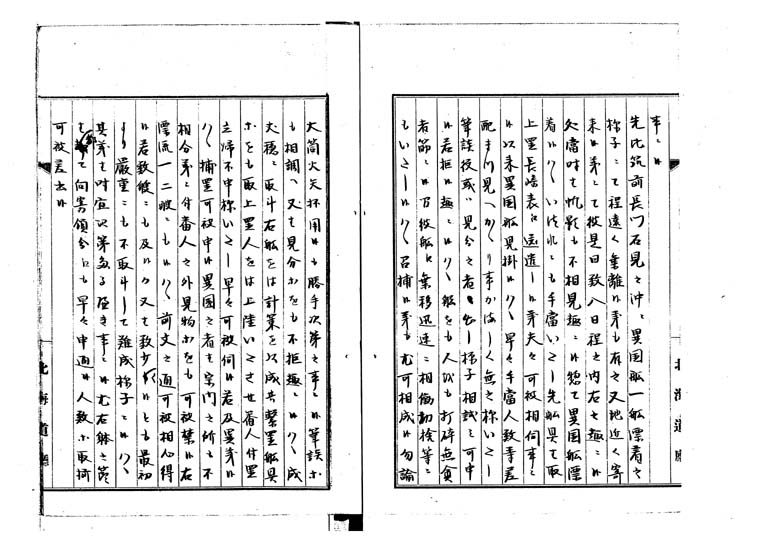 事ニ候
先比筑前長門石見之沖ニ異国船一艘漂着之
様子ニて程遠く乗離候義も有之又地近く寄
来候義ニて彼是日数八日程之内右之趣ニ候
当時ハ帆影も不相見趣ニ候惣て異国船漂
着候ハヽいつれニも手当いたし先船具は取
上置長崎表江送遣し候義夫々可被相伺事ニ
候以来異国船見掛候ハヽ早々手当人数等差
配まつ見へかゝり事かましく無之様いたし
筆談役或ハ見分之者出し様子相試ミ可申
候若拒候趣ニ候ハヽ船をも人をも打砕無貪
着節ニ候万彼船江乗移迅速ニ相働切捨等ニ
もいたし候ハヽ召捕候義も尤可相成候勿論
北海道廳
大筒火矢杯用候も勝手次第之事ニ候筆談等
も相調ヘ又ハ見分等をも不拒趣ニ候ハヽ成
丈穏ニ取斗右船をは計策を以成共繋置船具
等をも取上置人をは上陸いたさせ番人付置
立帰不申様いたし早々可被伺候若及異義候
ハヽ捕置可被申候異国之者ハ宗門之所も不
相分義ニ付番人之外見物等をも可被禁候右
漂流一二艘ニも候ハヽ前文之通可被相心得
候若数艘ニも及候カ又ハ数少ニ候とも最初
より厳重ニも不取斗して難成様子ニ候ハヽ
其義ハ時宜次第たる儘き事ニ候尤右躰之節
向寄領分江も早々申通候人数等取揃
可被差出候
北海道廳